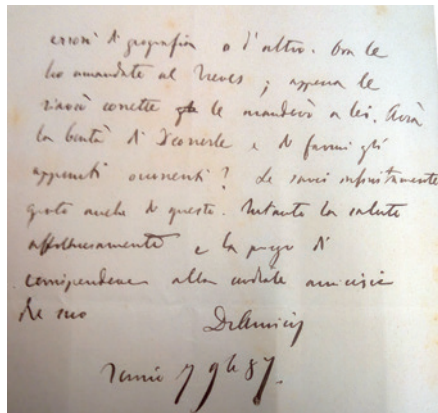 errori di geografia o d'altro. Ora le
ho mandate al Treves; appena le
riavrò corrette gle le manderò a lei. Avrà
la bontà di scorrerle e di farmi gli
appunti occorrenti? Le sarei infinitamente
grato anche di questo. Intanto la saluto
affettuosamente e la prego di
corrispondere alla cordiale amicizia
del suo
DeAmicis
7 9bre 87.